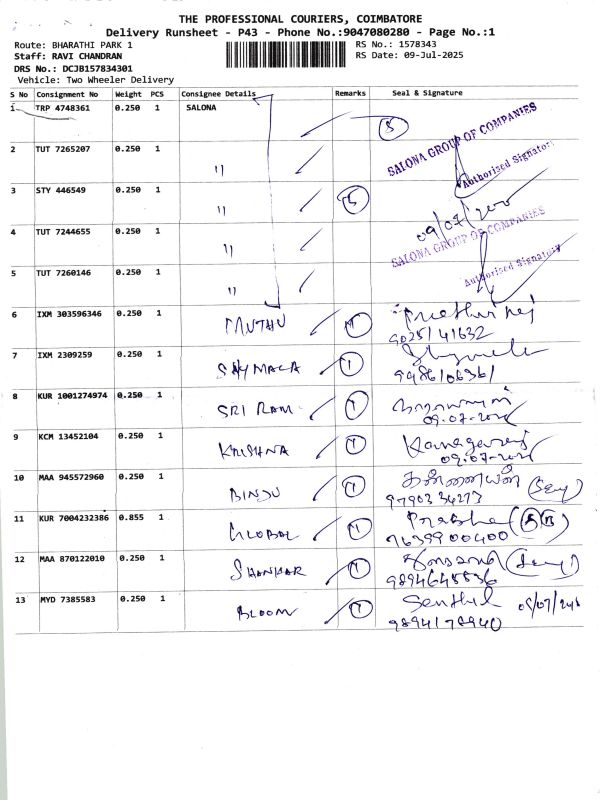 THE PROFESSIONAL COURIERS, COIMBATORE
Delivery Runsheet - P43 - Phone No.:9047080280 - Page No.:1
Route: BHARATHI PARK 1 RS No.: 1578343
Staff: RAVI CHANDRAN RS Date: 09-Jul-2025
DRS No.: DCJB157834301
Vehicle: Two Wheeler Delivery
S No Consignment No Weight PCS Consignee Details Remarks Seal & Signature
1 TRP 4748361 0.250 1 SALONA 5
SALONA GROUP OF COMPANIES
2 TUT 7265207 0.250 1 "
Authorised Signatory
3 STY 446549 0.250 1 " 5
09/07/
4 TUT 7244655 0.250 1 "
SALONA GROUP OF COMPANIES
5 TUT 7260146 0.250 1 "
Authorised Signatory
6 IXM 303596346 0.250 1 MUTHU 1
9025141632
7 IXM 2309259 0.250 1 SHYMALA 1
8 KUR 1001274974 0.250 1 SRI RAM 1
9 KCM 13452104 0.250 1 KRISHNA 1 Kanagaraj
10 MAA 945572960 0.250 1 BINDU 1
9790334273
11 KUR 7004232386 0.855 1 GLOBAL 1
7639900400
12 MAA 870122010 0.250 1 SHANKAR 1
13 MYD 7385583 0.250 1 BLOOM 1 Senthil
9894178940